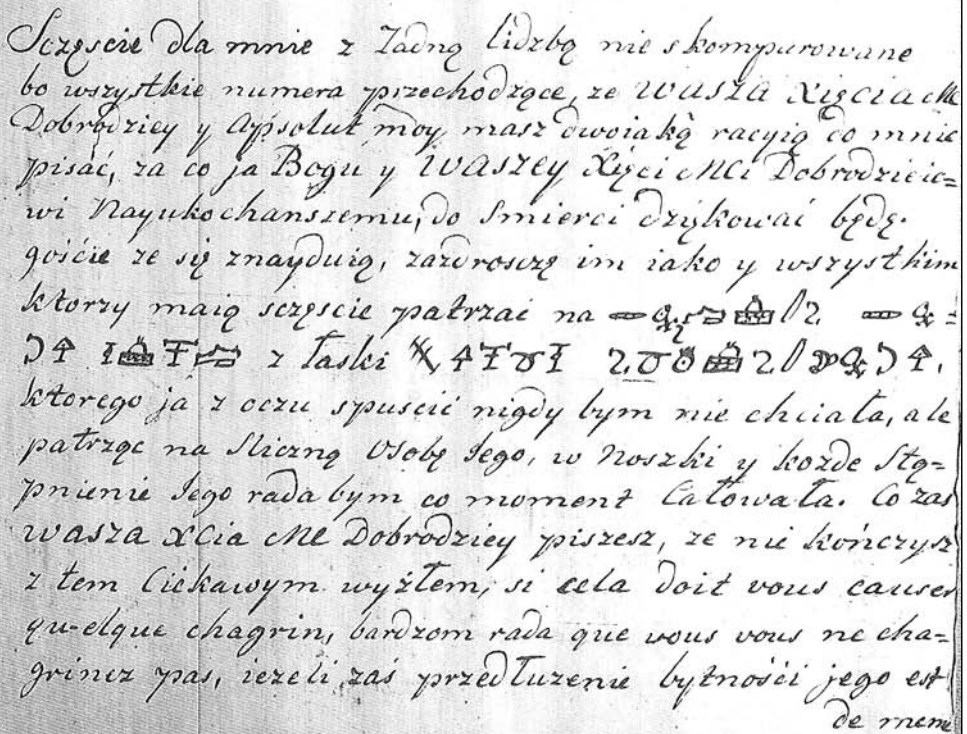 Sczęscie dla mnie z żadną lidzbą nie skompurowane
bo wszystkie numera przechodzące, ze WASZA XIĘCIA MC
Dobrodziey y Apsolut moy masz dwoiaką racyią do mnie
pisać, za co ja Bogu y WASZEY Xięci MCi Dobrodzieie=
wi Nayukochanszemu, do Smierci dzękować będę.
gościie ze się znayduią, zazdroszczę im iako y wszystkim
ktorzy maią sczęscie patrzać na
z łaski
ktorego ja z oczu spuscić nigdy bym nie chciała, ale
patrząc na Sliczną Osobę Iego, w Noszki y kozde Stą=
pnienie Iego rada bym co moment Całowała. Co zas
WASZA XCia MC Dobrodziey piszesz, ze nie kończysz
z tem Ciekawym wyżłem, si cela doit vous causer
qu-elque chagrin, bardzom rada que vous vous ne cha=
grinez pas, iezeli zaś przedłuzenie bytnośći jego est
de meme